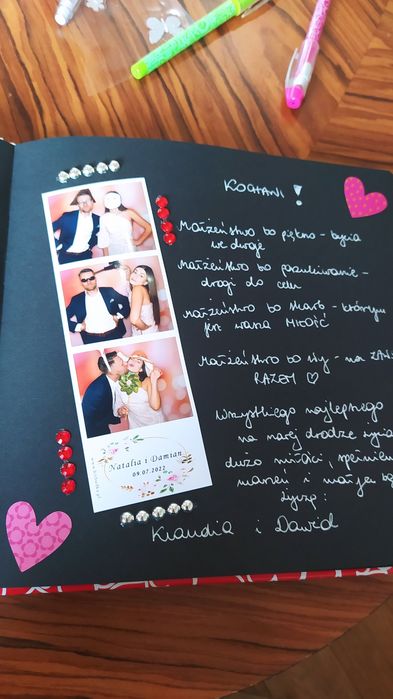 KOCHANI !
Małżeństwo to piękno - bycia
we dwoje
Małżeństwo to poszukiwanie -
drogi do celu
Małżeństwo to skarb - którym
jest wasza MIŁOŚĆ
Małżeństwo to wy - na
RAZEM ♡
Wszystkiego najlepszego
na nowej drodze życia
dużo miłości, spełnien
marzeń i
życzą :
Klaudia i Dawid
Natalia i Damian
09.07.2022